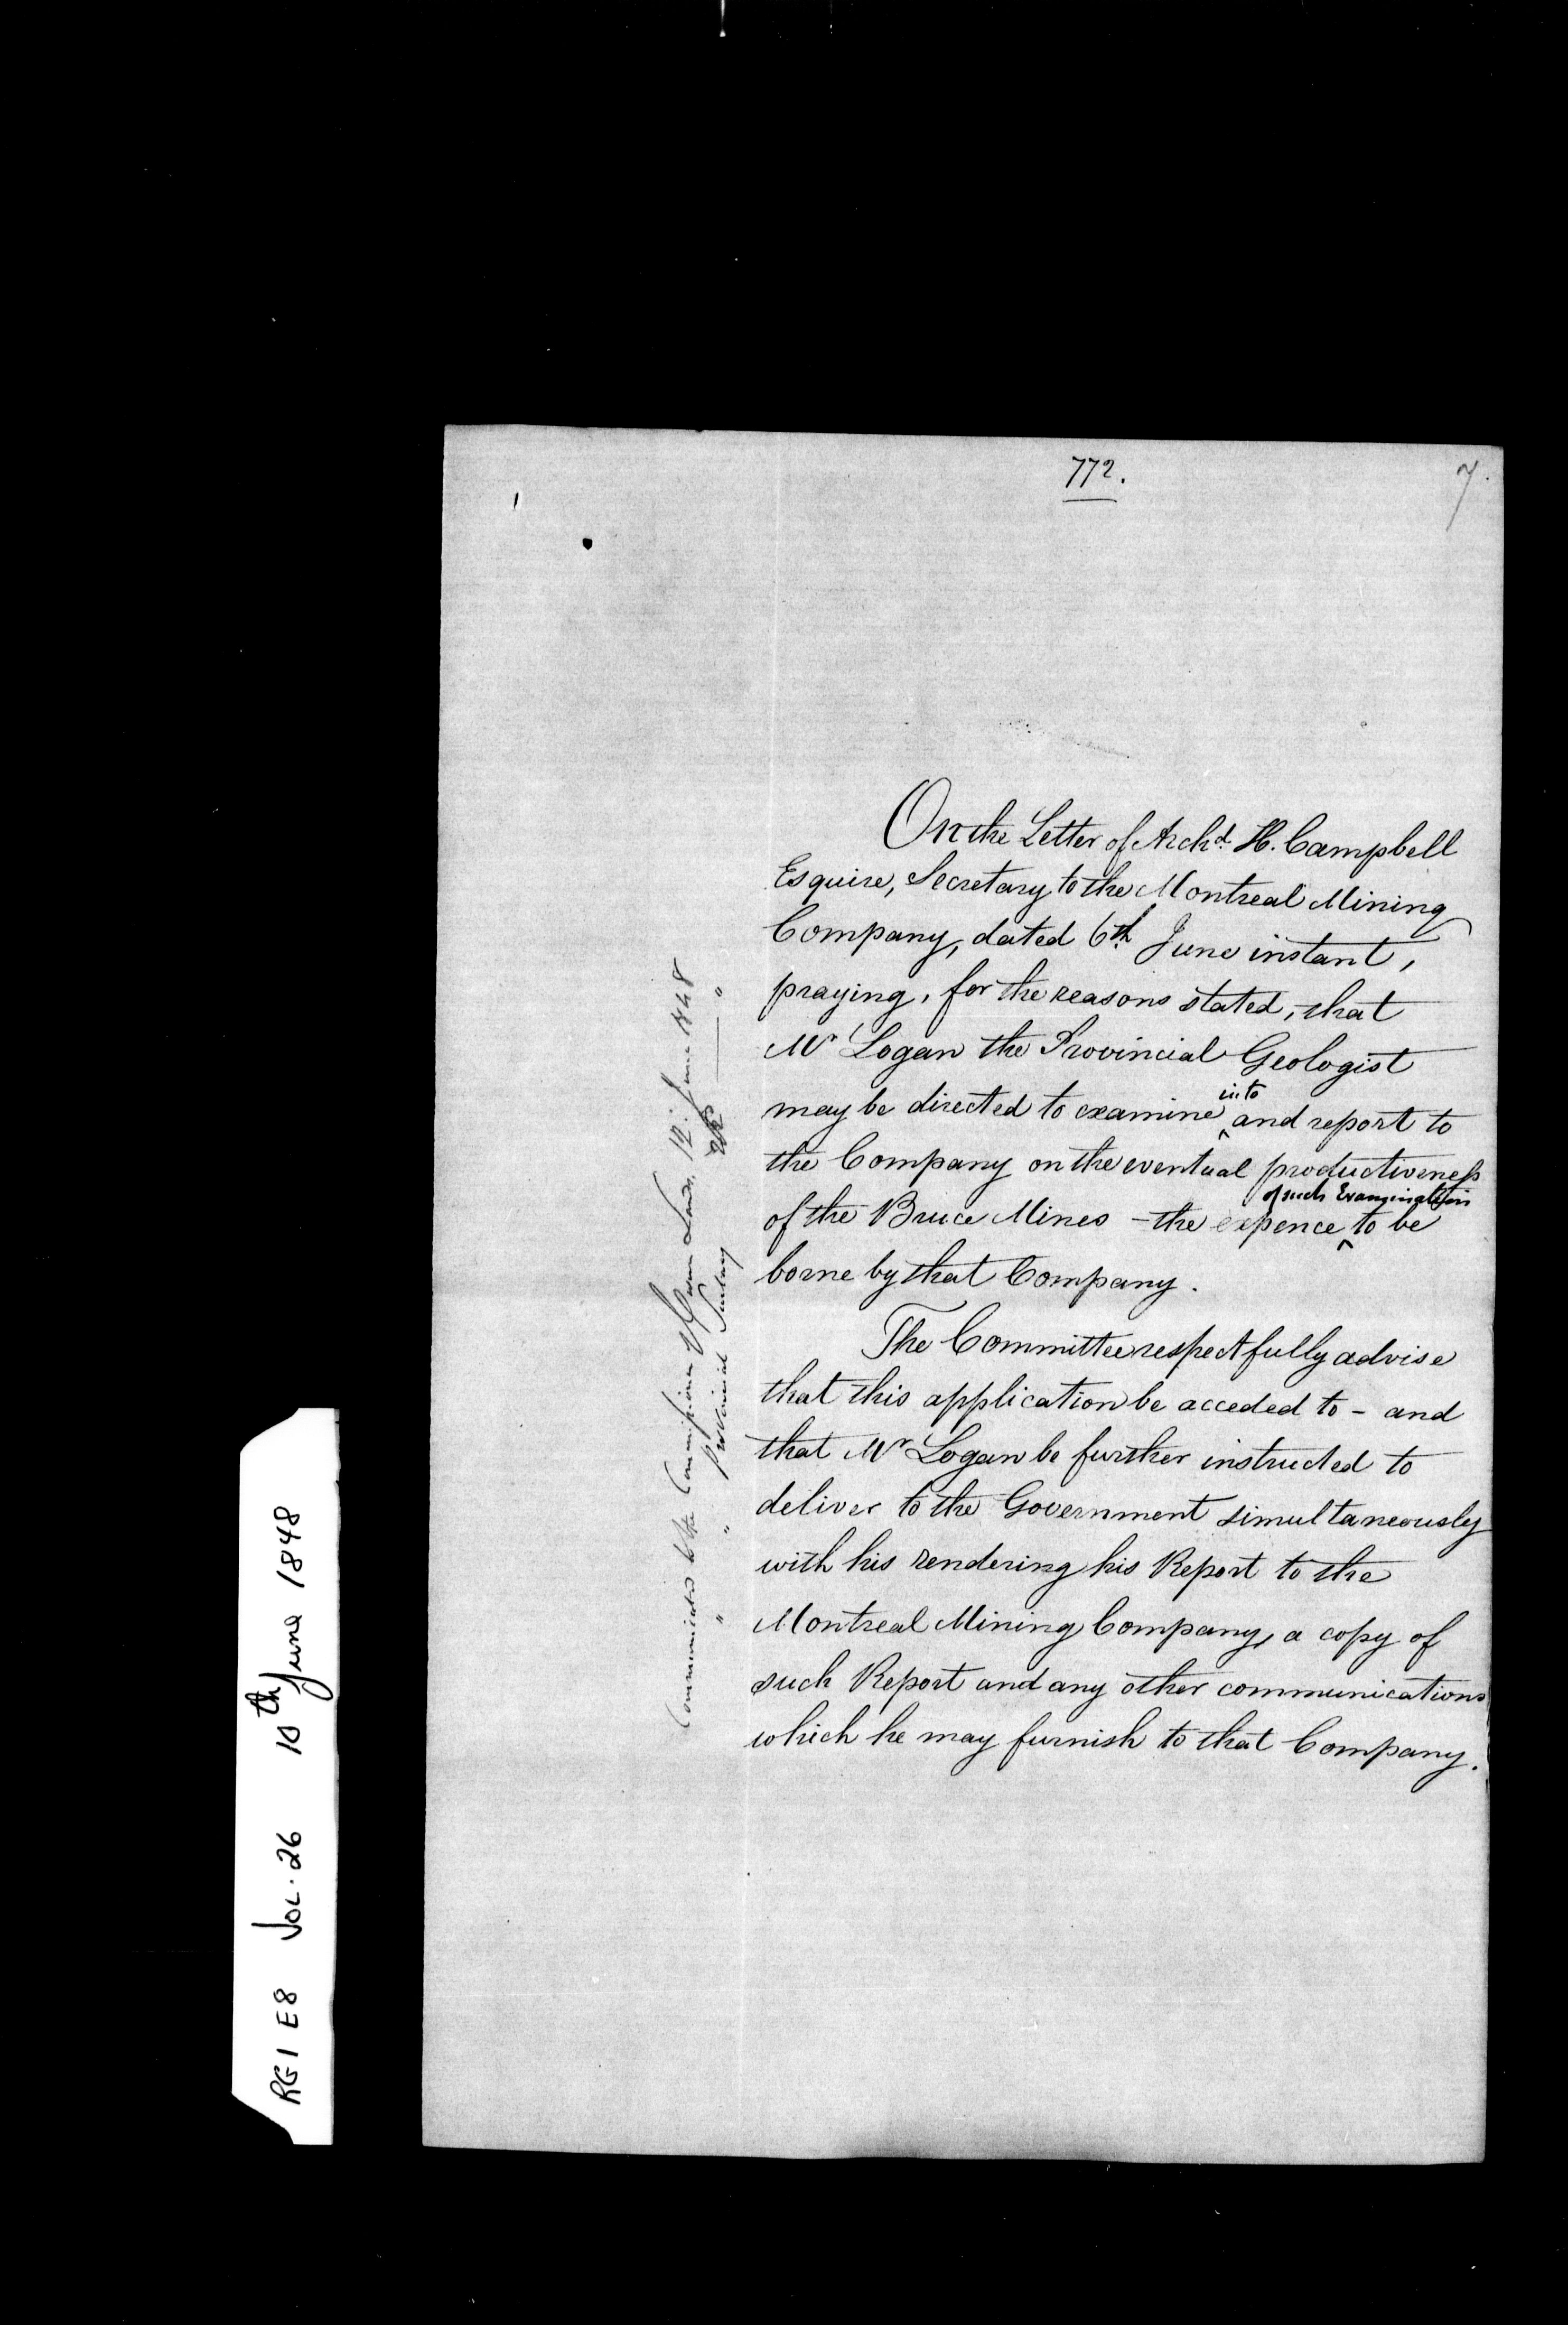 772.
7.
On the Letter of Archd. H. Campbell
Esquire, Secretary to the Montreal Mining
Company, dated 6th June instant,
praying, for the reasons stated, that
Mr Logan the Provincial Geologist
may be directed to examine into and report to
the Company on the eventual productiveness
of the Bruce Mines - the expence of such Examination to be
borne by that Company.
The Committee respectfully advise
that this application be acceded to - and
that Mr Logan be further instructed to
deliver to the Government simultaneously
with his rendering his Report to the
Montreal Mining Company, a copy of
such Report and any other communications
which he may furnish to that Company.
Communicated to the Commissioner of Crown Lands, 12. June 1848
" " Provincial Secretary "
RG1 E8 VOL. 26 10th June 1848